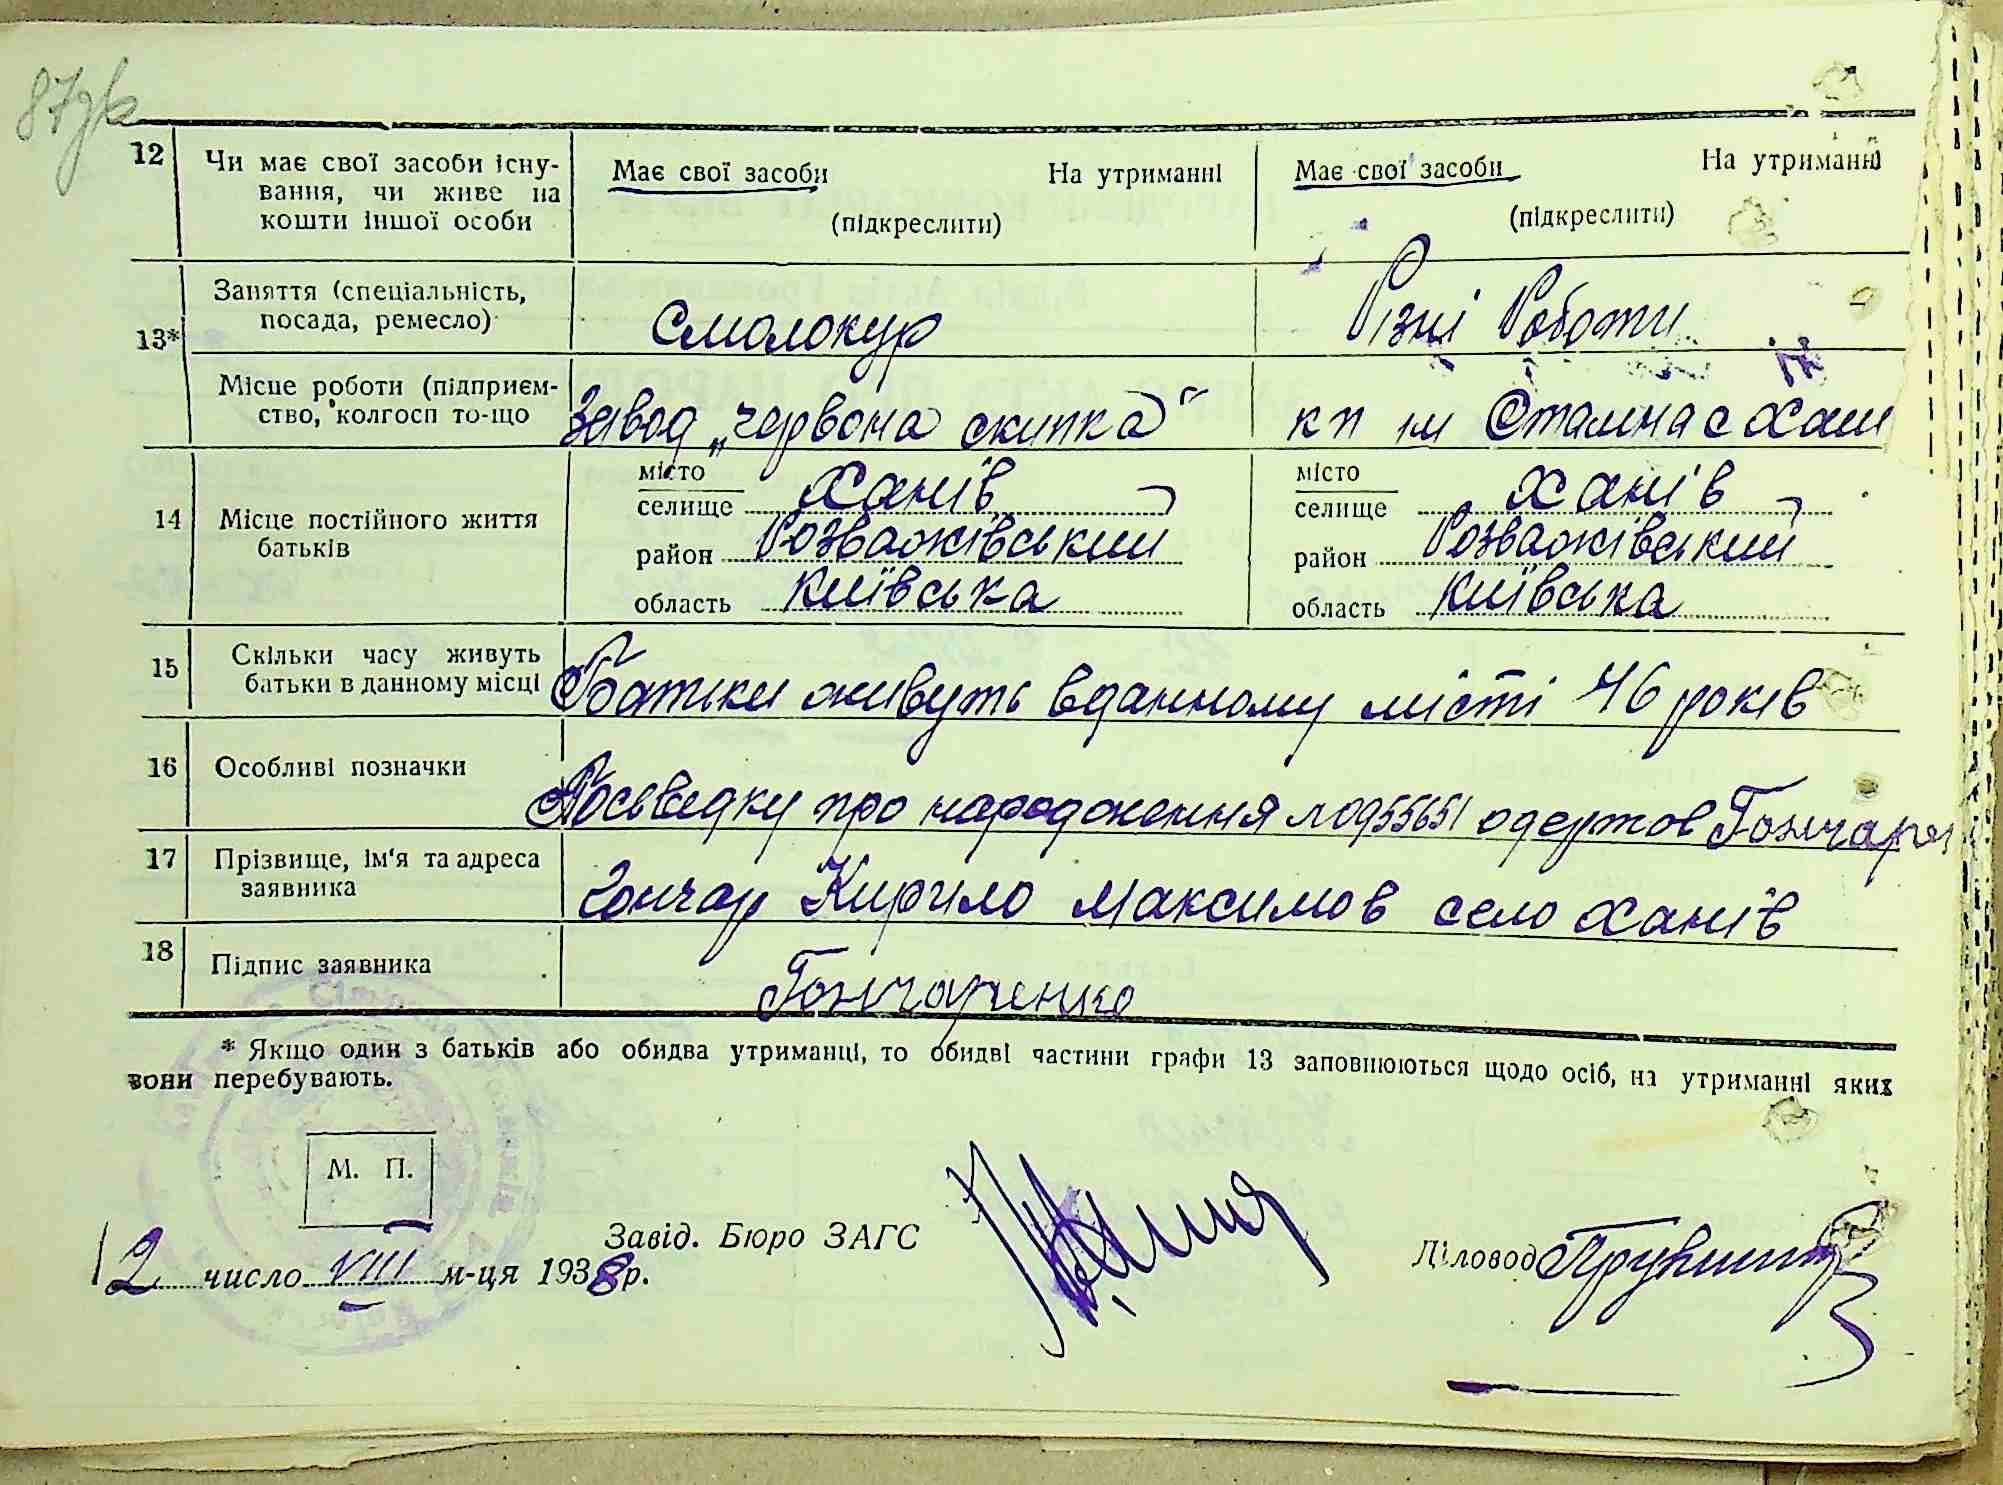 87зв
12 Чи має свої засоби існу-
вання, чи живе на
кошти іншої особи
Має свої засоби На утриманні
(підкреслити)
Має свої засоби На утриманні
(підкреслити)
13* Заняття (спеціальність,
посада, ремесло)
Смолокур
Різні Роботи
Місце роботи (підприєм-
ство, колгосп то-що
Завод „червона скипка"
кп ім Сталіна с Хані
14 Місце постійного життя
батьків
місто
селище Ханів
район Розважівський
область Київська
місто
селище Ханів
район Розважівський
область Київська
15 Скільки часу живуть
батьки в данному місці
Батьки живуть вданному місті 46 років
16 Особливі позначки
Посведку про народження 55651 одержов Гончарен
17 Прізвище, ім'я та адреса
заявника
Гончар Кирило Максимов село Ханів
18 Підпис заявника
Гончаренко
* Якщо один з батьків або обидва утриманці, то обидві частини графи 13 заповнюються щодо осіб, на утриманні яких
вони перебувають.
М. П.
Завід. Бюро ЗАГС
Діловод
12 число VIII м-ця 1938 р.